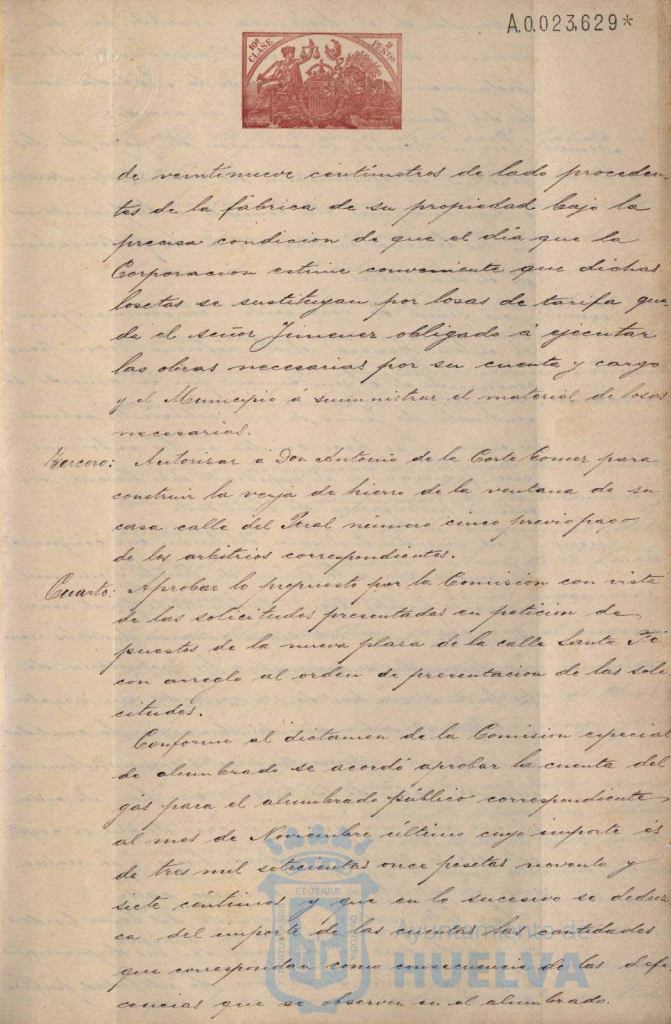 A.0.023,629*
10ª CLASE
2 PESETAS
de veintinueve centímetros de lado proceden-
tes de la fábrica de su propiedad bajo la
precisa condicion de que el día que la
Corporacion estime conveniente que dichas
losetas se sustituyan por losas de tarifa que-
da el señor Jimenez obligado á ejecutar
las obras necesarias por su cuenta y cargo
y el Municipio á suministrar el material de losas
necesarias.
Tercero: Autorizar á Don Antonio de la Corte Gomez para
construir la verja de hierro de la ventana de su
casa calle del Peral número cinco previo pago
de los arbitrios correspondientes.
Cuarto: Aprobar lo propuesto por la Comision con vista
de las solicitudes presentadas en peticion de
puestos de la nueva plaza de la calle Santa Fé
con arreglo al orden de presentacion de las soli-
citudes.
Conforme al dictamen de la Comision especial
de alumbrado se acordó aprobar la cuenta del
gas para el alumbrado público correspondiente
al mes de Noviembre último cuyo importe és
de tres mil setecientas once pesetas noventa y
siete céntimos y que en lo sucesivo se deduz-
ca del importe de las cuentas las cantidades
que correspondan como consecuencia de las defi-
ciencias que se observen en el alumbrado.
ET TERRÆ
Ayuntamiento de
HUELVA